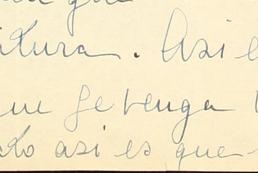 que
tura. Asi e
ue se tenga
to asi es que